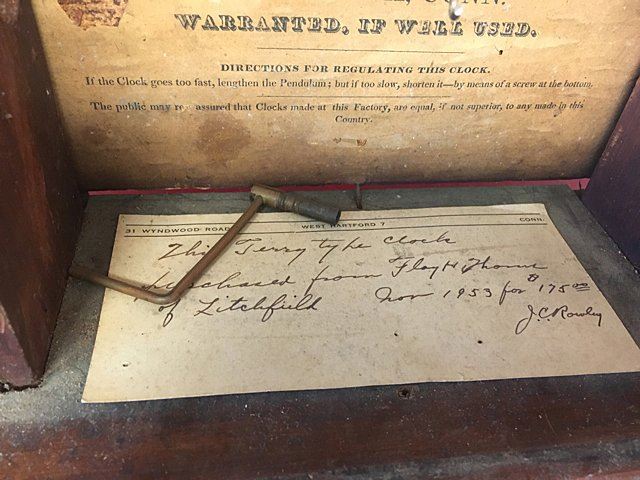 CONN.
WARRANTED, IF WELL USED.
DIRECTIONS FOR REGULATING THIS CLOCK.
If the Clock goes too fast, lengthen the Pendulum; but if too slow, shorten it—by means of a screw at the bottom.
The public may assured that Clocks made at this Factory, are equal, if not superior, to any made in this
Country.
31 WYNDWOOD ROAD WEST HARTFORD 7 CONN.
This Terry type clock
purchased from Floyd Thoms
of Litchfield Nov 1953 for $175.00
J.C. Rowley